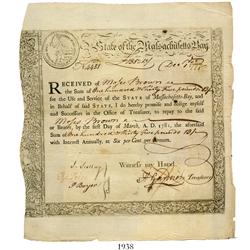 State of the Massachusetts-Bay
RECEIVED of Moses Brown
the Sum of One hundred & thirty five pounds
for the Use and Service of the STATE of Massachusetts-Bay, and
in Behalf of said STATE, I do hereby promise and oblige myself
and Successors in the Office of Treasurer, to repay to the said
Moses Brown
or Bearer, by the first Day of March, A. D. 1782, the aforesaid
Sum of One hundred & thirty five pounds
with Interest Annually, at Six per Cent. per Annum.
Witness my Hand
Treasurer
1938